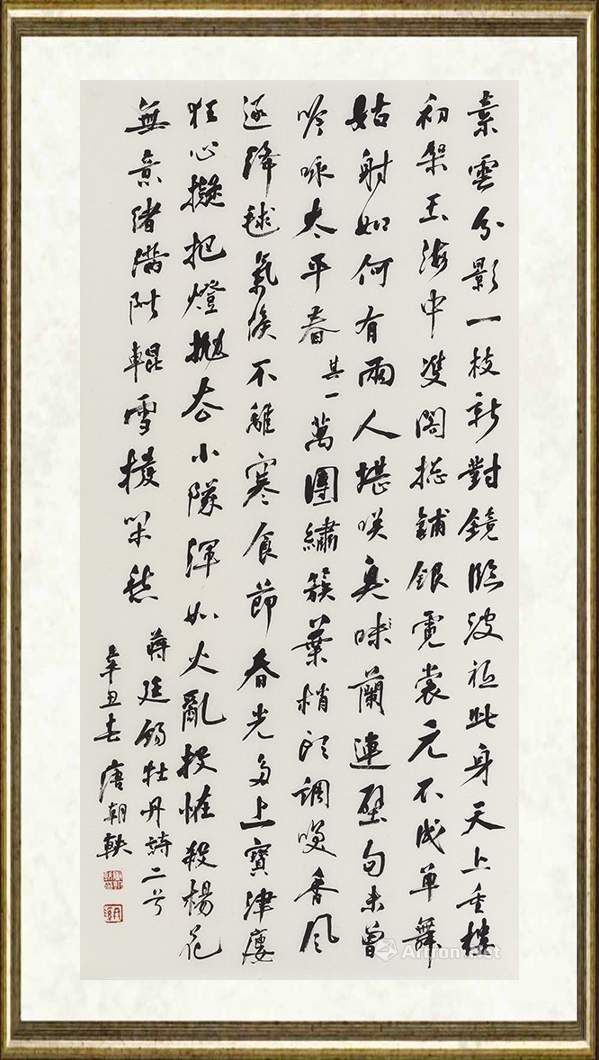 素雲分影一枝新對鏡臨波祗此身天上重樓
初架玉海中雙閣摠鋪銀霓裳元不成單舞
姑射如何有兩人堪咲臭味蘭連璧句未曾
吟咏太平春 其一 萬團繡簇葉梢頭調咲香風
逐絳毬氣候不離寒食節春光多上寶津樓
狂心擬把燈拋去小隊渾如火亂投惟殺楊花
無意緒滿階輥雪攪閑愁 蔣廷錫牡丹詩二首
辛丑春 唐朝軼
Artron.net